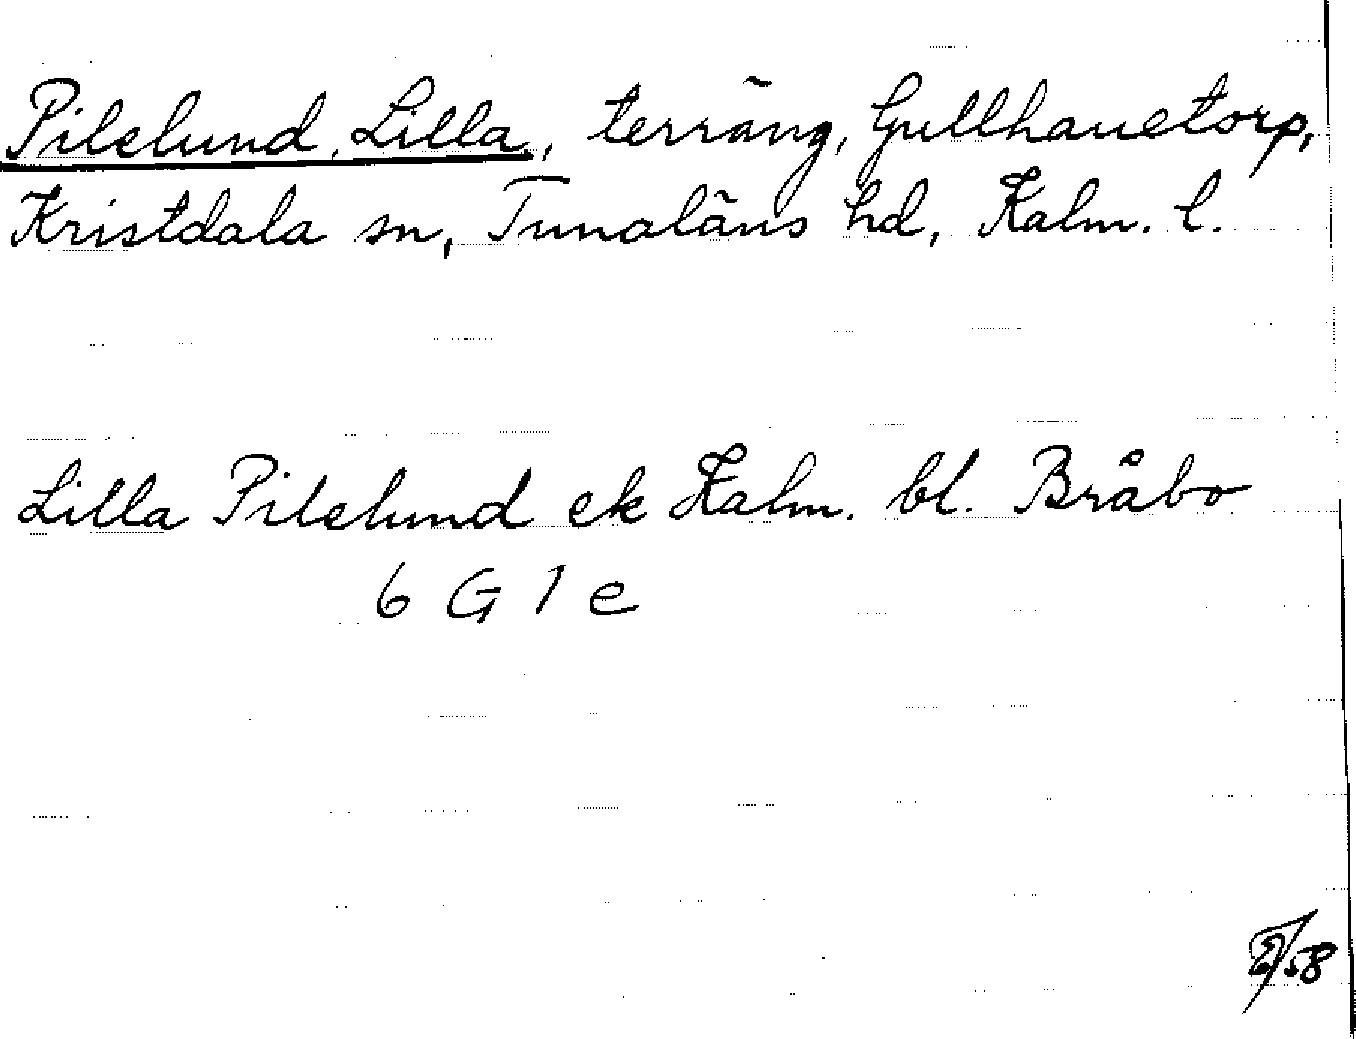 Pilelund, Lilla, terräng, Gullhanetorp,
Kristdala sn, Tunaläns hd, Kalm. l.
Lilla Pilelund ek Kalm. bl. Bråbo
6 G 1 e